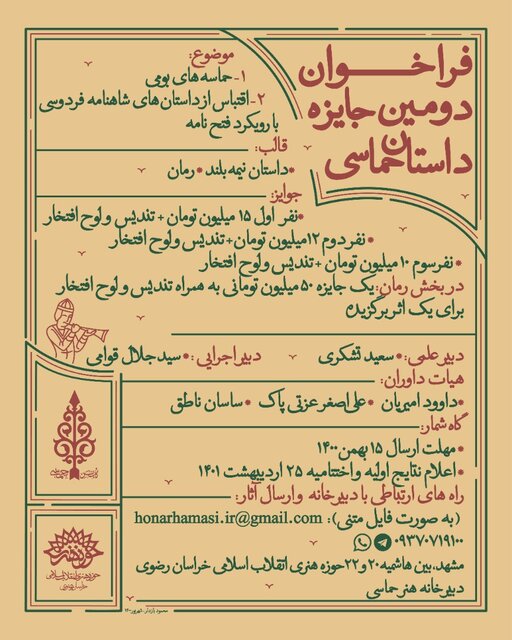 فراخوان
دومین جایزه
داستان حماسی
موضوع:
۱- حماسه های بومی
۲- اقتباس از داستان های شاهنامه فردوسی
با رویکرد فتح نامه
قالب:
داستان نیمه بلند * رمان
جوایز:
*نفر اول ۱۵ میلیون تومان + تندیس و لوح افتخار
*نفر دوم ۱۲ میلیون تومان + تندیس و لوح افتخار
*نفر سوم ۱۰ میلیون تومان + تندیس و لوح افتخار
در بخش رمان: یک جایزه ۵۰ میلیون تومانی به همراه تندیس و لوح افتخار
برای یک اثر برگزیده
دبیر علمی: * سعید تشکری دبیر اجرایی: * سید جلال قوامی
هیات داوران:
*داوود امیریان *علی اصغر عزتی پاک *ساسان ناطق
گاه شمار:
*مهلت ارسال ۱۵ بهمن ۱۴۰۰
*اعلام نتایج اولیه و اختتامیه ۲۵ اردیبهشت ۱۴۰۱
راه های ارتباطی با دبیرخانه و ارسال آثار:
(به صورت فایل متنی): honarhamasi.ir@gmail.com
۰۹۳۷۰۷۱۹۱۰۰
مشهد، بین هاشمیه ۲۰ و ۲۲ حوزه هنری انقلاب اسلامی خراسان رضوی
دبیرخانه هنر حماسی
حوزه هنری انقلاب اسلامی
خراسان رضوی